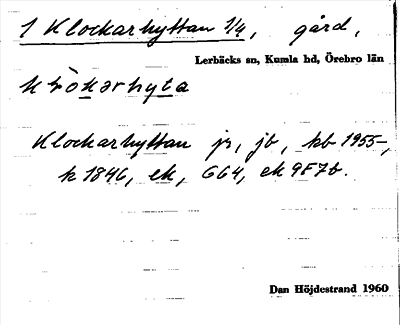 1 Klockarhyttan 1/4, gård,
Lerbäcks sn, Kumla hd, Örebro län
Klockarhyttan jr, jb, kb 1955-,
k 1846, ek, G64, ek 9F7b.
Dan Höjdestrand 1960